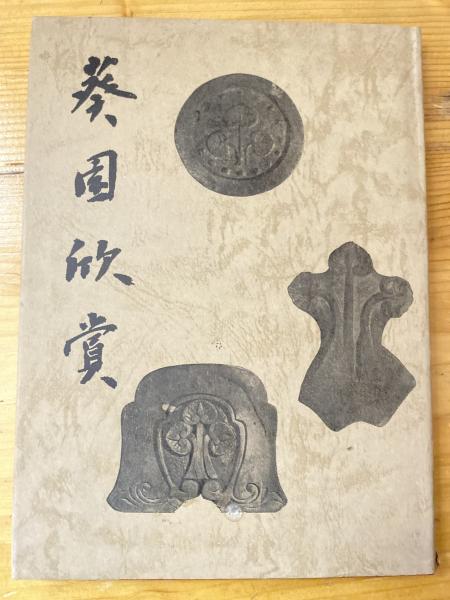 葵園欣賞